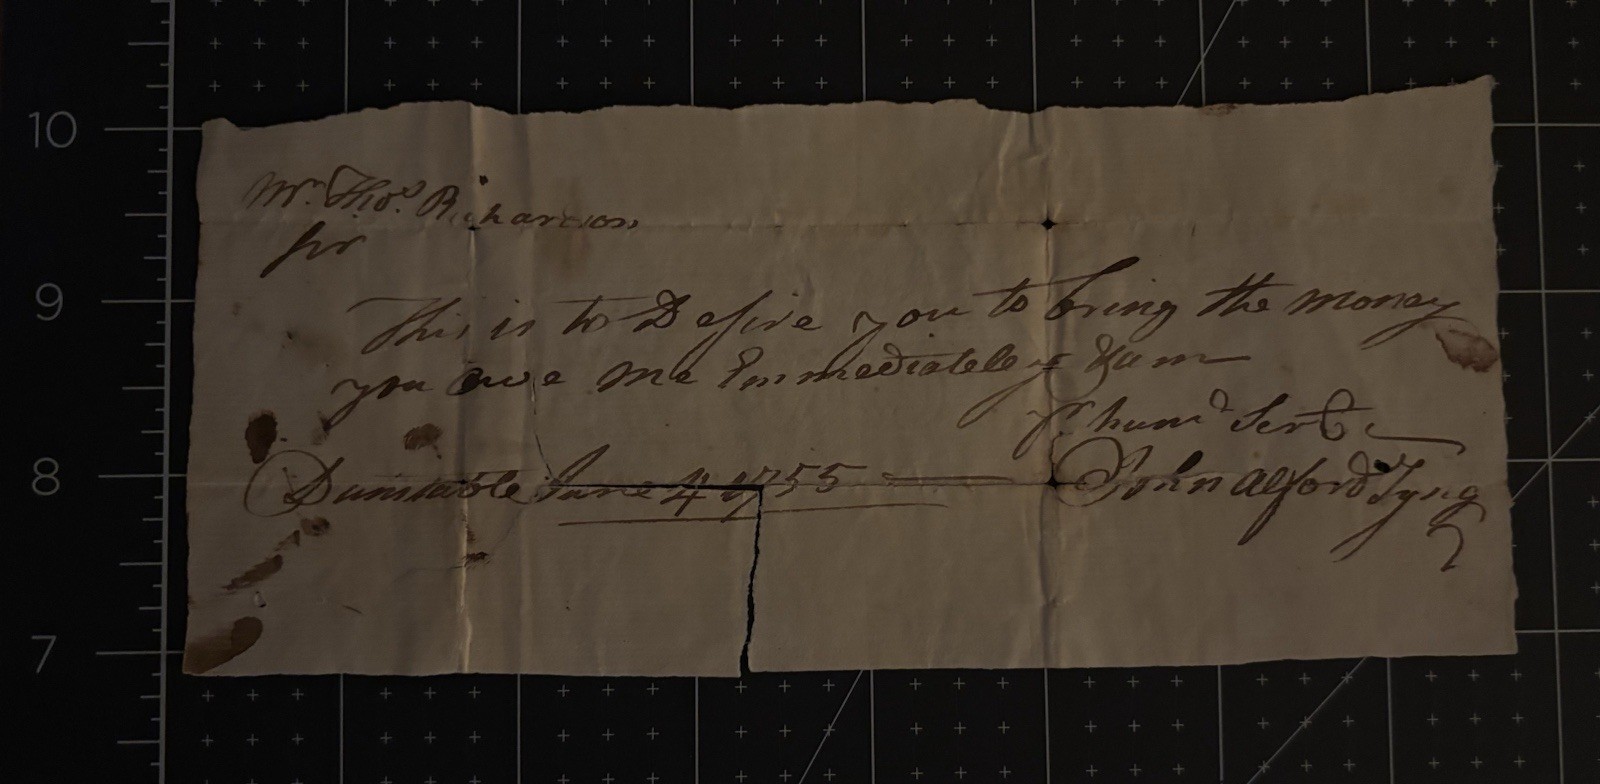 10
9
8
7
Mr. Thos. Richardson
Sir
This is to Desire you to bring the money
you owe me Immediateley & am
yr. humd Servt.
Dunstable June 4 1755 John Alford Tyng